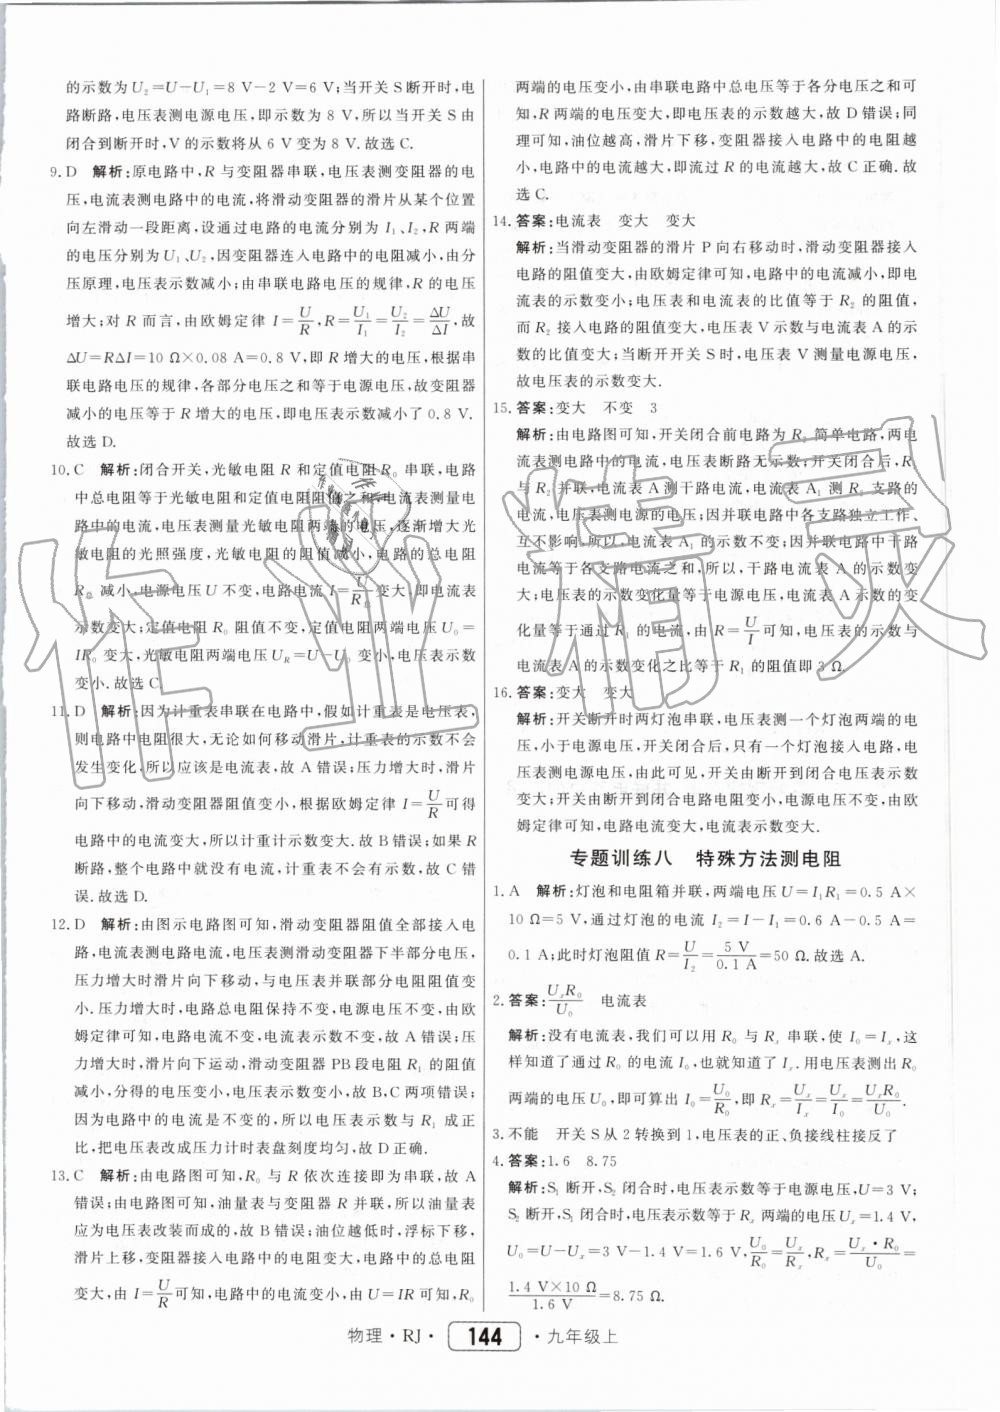 的示数为U₂=U-U₁=8 V-2 V=6 V;当开关S断开时,电
路断路,电压表测电源电压,即示数为8 V,所以当开关S由
闭合到断开时,V的示数将从6 V变为8 V.故选C.
9. D 解析:原电路中,R与变阻器串联,电压表测变阻器的电
压,电流表测电路中的电流,将滑动变阻器的滑片从某个位置
向左滑动一段距离,设通过电路的电流分别为I₁、I₂,R两端
的电压分别为U₁、U₂,因变阻器连入电路中的电阻减小,由分
压原理,电压表示数减小;由串联电路电压的规律,R的电压
增大;对R而言,由欧姆定律I=U/R,R=U₁/I₁=U₂/I₂=ΔU/ΔI,故
ΔU=RΔI=10 Ω×0.08 A=0.8 V,即R增大的电压,根据串
联电路电压的规律,各部分电压之和等于电源电压,故变阻器
减小的电压等于R增大的电压,即电压表示数减小了0.8 V.
故选D.
10. C 解析:闭合开关,光敏电阻R和定值电阻R₀串联,电路
中总电阻等于光敏电阻和定值电阻阻值之和,电流表测量电
路中的电流,电压表测量光敏电阻两端的电压,逐渐增大光
敏电阻的光照强度,光敏电阻的阻值减小,电路的总电阻
R总减小,电源电压U不变,电路电流I=U/R总变大,即电流表
示数变大;定值电阻R₀阻值不变,定值电阻两端电压U₀=
IR₀变大,光敏电阻两端电压U_R=U-U₀变小,电压表示数
变小.故选C.
11. D 解析:因为计重表串联在电路中,假如计重表是电压表,
则电路中电阻很大,无论如何移动滑片,计重表的示数不会
发生变化,所以应该是电流表,故A错误;压力增大时,滑片
向下移动,滑动变阻器阻值变小,根据欧姆定律I=U/R可得
电路中的电流变大,所以计重计示数变大.故B错误;如果R
断路,整个电路中就没有电流,计重表不会有示数,故C错
误.故选D.
12. D 解析:由图示电路图可知,滑动变阻器阻值全部接入电
路,电流表测电路电流,电压表测滑动变阻器下半部分电压,
压力增大时滑片向下移动,与电压表并联部分电阻阻值变
小.压力增大时,电路总电阻保持不变,电源电压不变,由欧
姆定律可知,电路电流不变,电流表示数不变;故A错误;压
力增大时,滑片向下运动,滑动变阻器PB段电阻R₁的阻值
减小,分得的电压变小,电压表示数变小,故B,C两项错误;
因为电路中的电流是不变的,所以电压表示数与R₁成正
比,把电压表改成压力计时表盘刻度均匀,故D正确.
13. C 解析:由电路图可知,R₀与R依次连接即为串联,故A
错误;由电路图可知,油量表与变阻器R并联,所以油量表
应为电压表改装而成的,故B错误;油位越低时,浮标下移,
滑片上移,变阻器接入电路中的电阻变大,电路中的总电阻
变大,由I=U/R可知,电路中的电流变小,由U=IR可知,R₀
两端的电压变小,由串联电路中总电压等于各分电压之和可
知,R两端的电压变大,即电压表的示数越大,故D错误;同
理可知,油位越高,滑片下移,变阻器接入电路中的电阻越
小,电路中的电流越大,即流过R的电流越大,故C正确.故
选C.
14. 答案:电流表 变大 变大
解析:当滑动变阻器的滑片P向右移动时,滑动变阻器接入
电路的阻值变大,由欧姆定律可知,电路中的电流减小,即电
流表的示数变小;电压表和电流表的比值等于R₂的阻值,
而R₂接入电路的阻值变大,故电压表V示数与电流表A的示
数的比值变大;当断开开关S时,电压表V测量电源电压,
故电压表的示数变大.
15. 答案:变大 不变 3
解析:由电路图可知,开关闭合前电路为R₂简单电路,两电
流表测电路中的电流,电压表断路无示数;开关闭合后,R₁
与R₂并联,电流表A测干路电流,电流表A₁测R₂支路的
电流,电压表测电源的电压;因并联电路中各支路独立工作、
互不影响,所以,电流表A₁的示数不变;因并联电路中干路
电流等于各支路电流之和,所以,干路电流变大,电流表示数变
大;电压表的示数变化量等于电源电压,电流表A示数的变
化量等于通过R₁的电流,由R=U/I可知,电压表的示数与
电流表A的示数变化之比等于R₁的阻值即3 Ω.
16. 答案:变大 变大
解析:开关断开时两灯泡串联,电压表测一个灯泡两端的电
压,小于电源电压,开关闭合后,只有一个灯泡接入电路,电
压表测电源电压,由此可见,开关由断开到闭合电压表示数
变大;开关由断开到闭合电路电阻变小,电源电压不变,由欧
姆定律可知,电路电流变大,电流表示数变大.
专题训练八 特殊方法测电阻
1. A 解析:灯泡和电阻箱并联,两端电压U=I₁R₁=0.5 A×
10 Ω=5 V,通过灯泡的电流I₂=I-I₁=0.6 A-0.5 A=
0.1 A;此时灯泡阻值R=U/I₂=5 V/0.1 A=50 Ω.故选A.
2. 答案:UₓR₀/U₀ 电流表
解析:没有电流表,我们可以用R₀与Rₓ串联,使I₀=Iₓ,这
样知道了通过R₀的电流I₀,也就知道了Iₓ.用电压表测出R₀
两端的电压U₀,即可算出I₀=U₀/R₀,即Rₓ=Uₓ/Iₓ=Uₓ/I₀=UₓR₀/U₀.
3. 不能 开关S从2转换到1,电压表的正、负接线柱接反了
4. 答案:1.6 8.75
解析:S₁断开,S₂闭合时,电压表示数等于电源电压,U=3 V;
S₂断开,S₁闭合时,电压表示数等于Rₓ两端的电压Uₓ=1.4 V,
U₀=U-Uₓ=3 V-1.4 V=1.6 V,U₀/R₀=Uₓ/Rₓ,Rₓ=Uₓ·R₀/U₀=
1.4 V×10 Ω/1.6 V=8.75 Ω.
物理·RJ· 144 ·九年级上
作业精灵